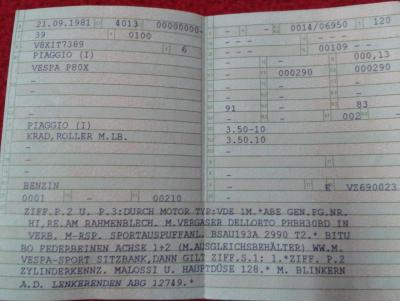 21.09.1981 4013 00000000-
39 0100
V8X1T7389 6
PIAGGIO (I)
VESPA P80X
-
-
-
PIAGGIO (I)
KRAD,ROLLER M.LB.
-
-
BENZIN
0001 - 00210
- - 0014/06950 120
- - - -
- - 00109 - -
- - 000,13
- 000290 000290
- - -
- - -
91 - 83
- - 002 -
3.50-10
3.50.10
-
-
- E VZ690023
ZIFF.P.2 U. P.3:DURCH MOTOR TYP:VDE 1M.*ABE GEN.FG.NR.
HI,RE.AM RAHMENBLECH. M.VERGASER DELLORTO PHBH30BD IN
VERB. M-RSP. SPORTAUSPUFFANL. BSAU193A 2990 T2.* BITU
BO FEDERBEINEN ACHSE 1+2 (M.AUSGLEICHSBEHÄLTER) WW.M.
VESPA-SPORT SITZBANK,DANN GILT ZIFF.S.1: 1.*ZIFF. P.2
ZYLINDERKENNZ. MALOSSI U. HAUPTDÜSE 128.* M. BLINKERN
A.D. LENKERENDEN ABG 12749.*